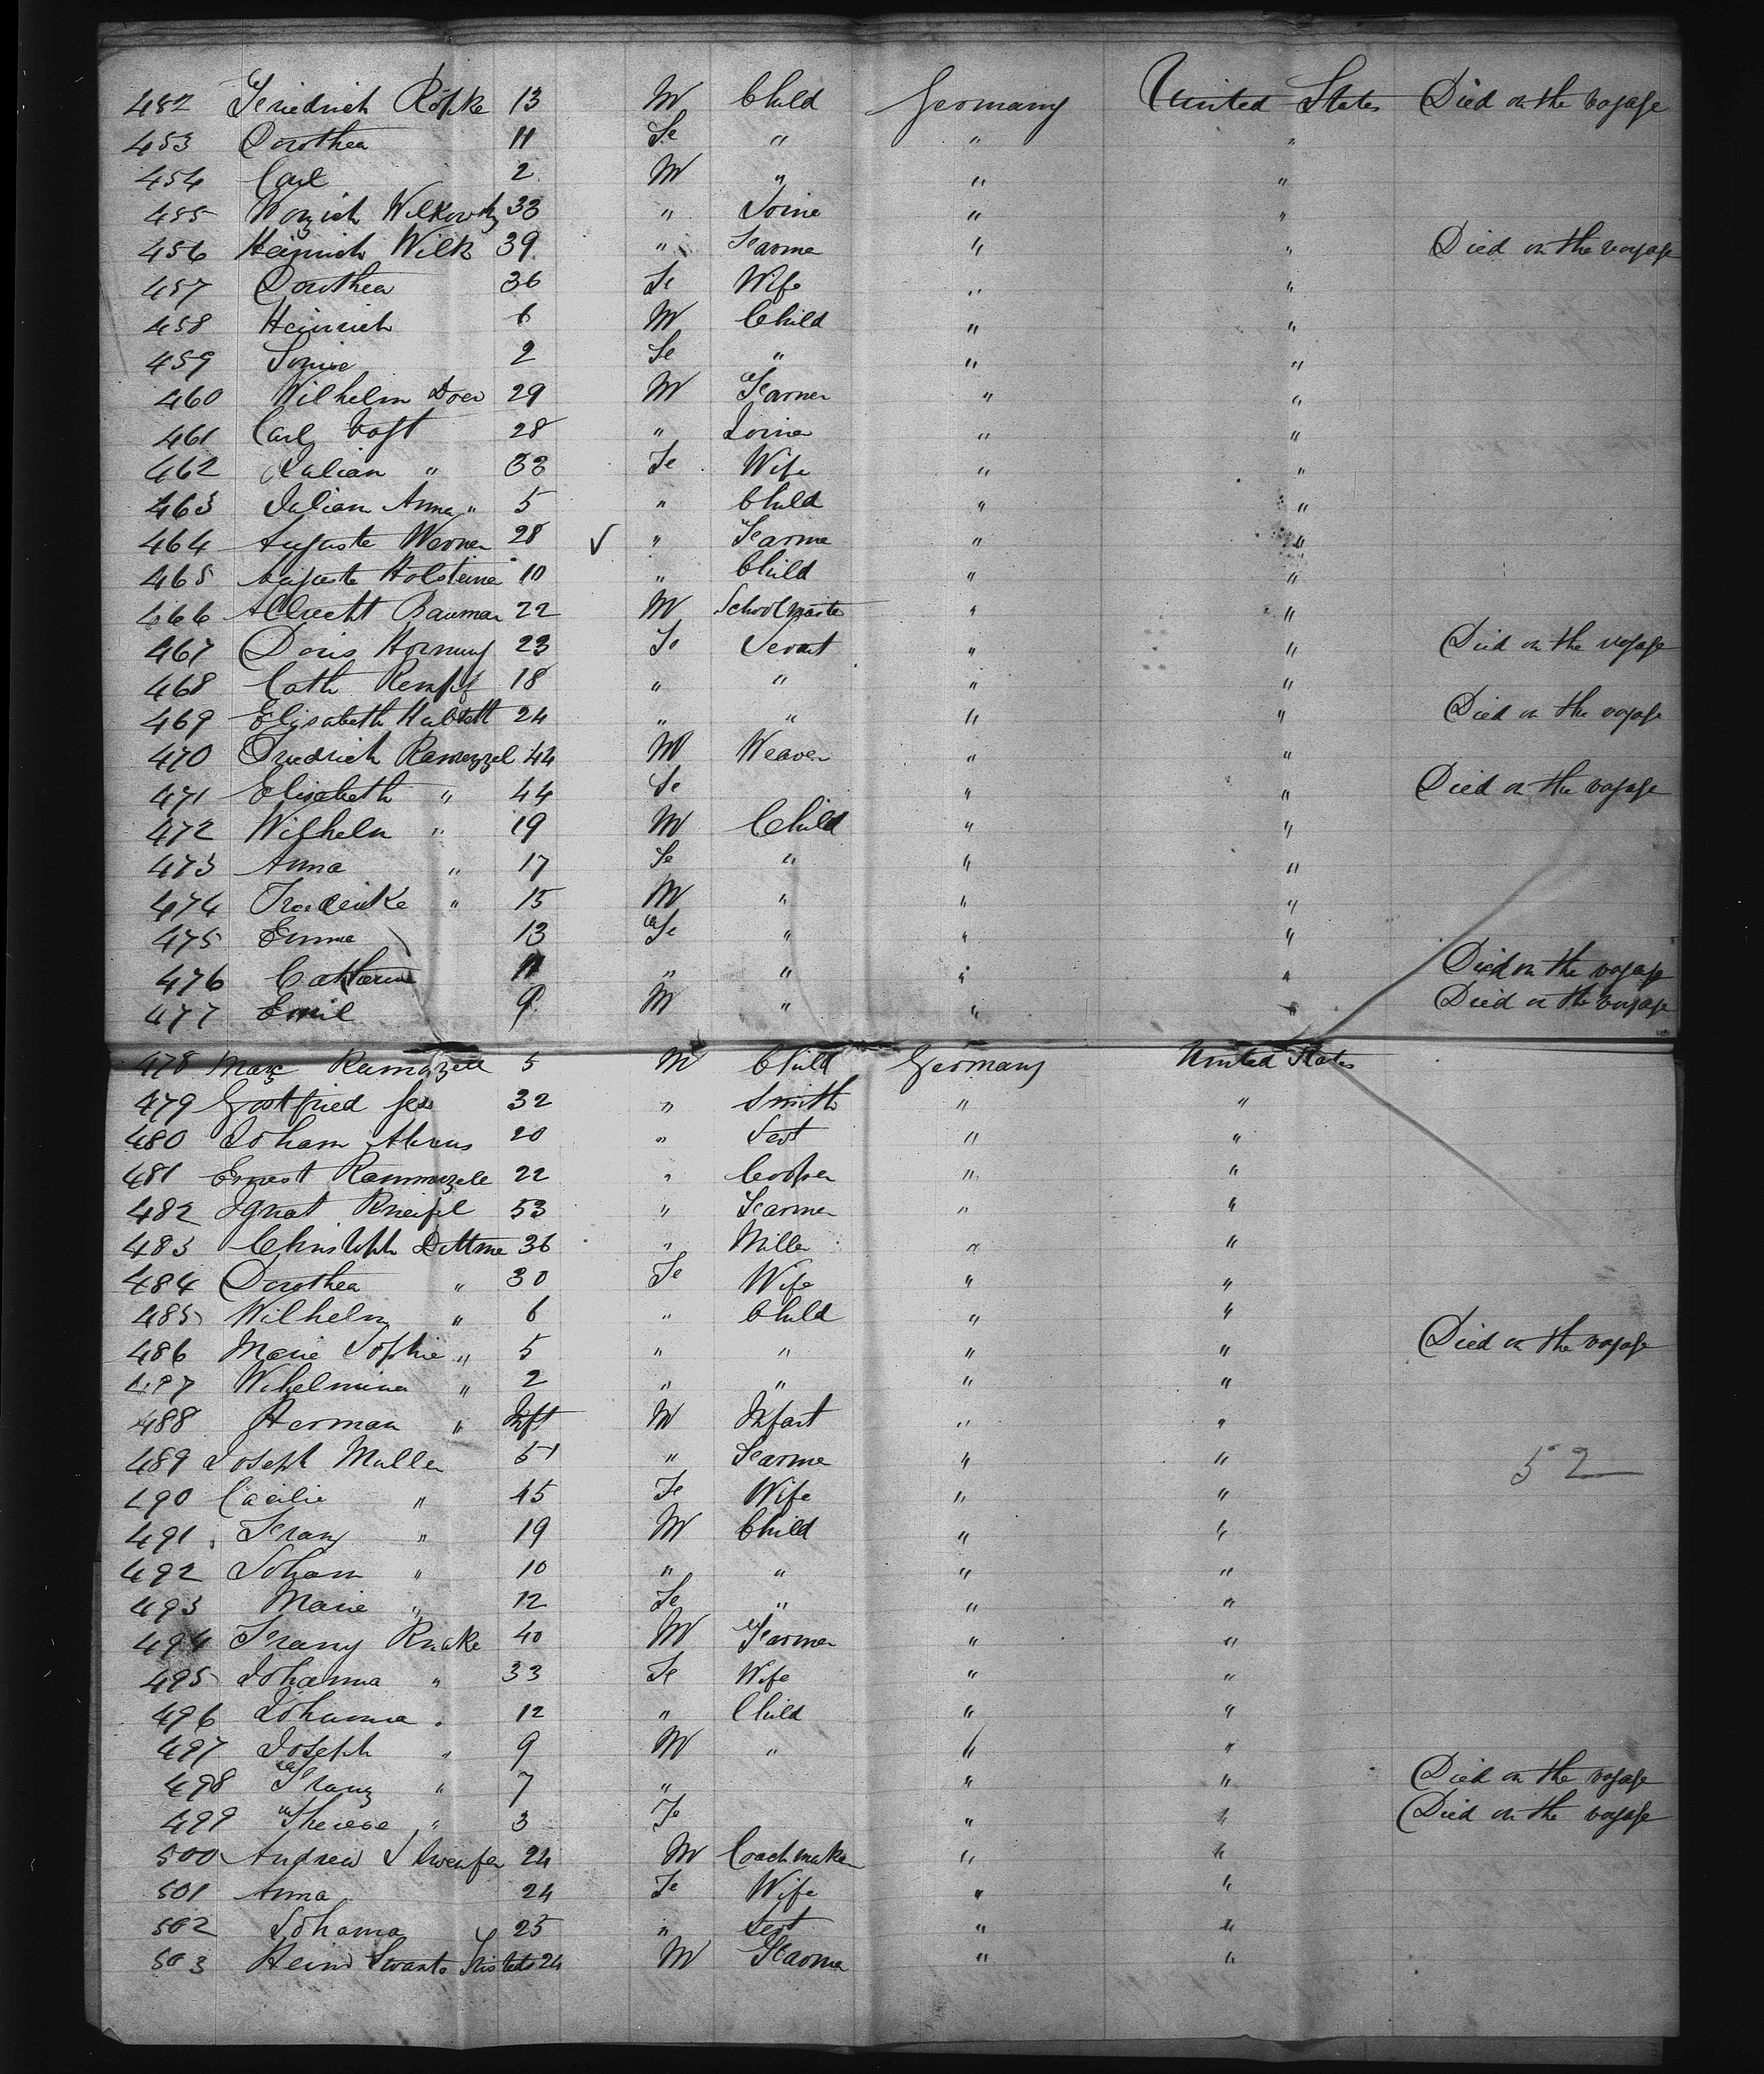 452 Friedrich Röpke 13 M Child Germany United States Died on the voyage
453 Dorothea 11 Fe " " "
454 Carl 2 M " " "
455 Wilkowsky 33 " Joine " "
456 Heinrich Wilk 39 " Farme " " Died on the voyage
457 Dorothea 36 Fe Wife " "
458 Heinrich 6 M Child " "
459 Louise 2 Fe " " "
460 Wilhelm Doer 29 M Farmer " "
461 Carl Voft 28 " Joiner " "
462 Julian " 33 Fe Wife " "
463 Julian Anna " 5 " Child " "
464 Auguste Werner 28 √ " Farme " "
465 Auguste Holsteine 10 " Child " "
466 Albrecht Bauman 22 M Schoolmaste " "
467 Doris Hornung 23 Fe Servt " " Died on the voyage
468 Cath Kempf 18 " " " "
469 Elisabeth 24 " " " " Died on the voyage
470 Friedrich Ramezzel 44 M Weaver " "
471 Elisabeth " 44 Fe " " Died on the voyage
472 Wilhelm " 19 M Child " "
473 Anna " 17 Fe " " "
474 Frederike " 15 M " " "
475 Emma 13 Fe " " "
476 Catharine 11 " " " " Died on the voyage
477 Emil 9 M " " " Died on the voyage
478 Max Ramazzell 5 M Child Germany United States
479 Gottfried 32 " Smith " "
480 Joham Ahrens 20 " Sevt " "
481 Ernest Rammezell 22 " Cooper " "
482 Ignat Kneifel 53 " Farmer " "
483 Christoph Dittme 36 " Mille " "
484 Dorothea " 30 Fe Wife " "
485 Wilhelm " 6 " Child " "
486 Marie Sophie " 5 " " " " Died on the voyage
487 Wihelmina " 2 " " " "
488 Herman " Inft M Infant " "
489 Joseph Muller 51 " Farme " "
52
490 Cacilie " 45 Fe Wife " "
491 Franz " 19 M Child " "
492 Joham " 10 " " " "
493 Marie " 12 Fe " " "
494 Franz Knake 40 M Farmer " "
495 Johanna " 33 Fe Wife " "
496 Johanna " 12 " Child " "
497 Joseph " 9 M " " "
498 Franz " 7 " " " Died on the voyage
499 Therese " 3 Fe " " Died on the voyage
500 Andrew 24 M Coachmaker " "
501 Anna 24 Fe Wife " "
502 Johanna 25 " Sevt " "
503 Hein 24 M Farmer " "